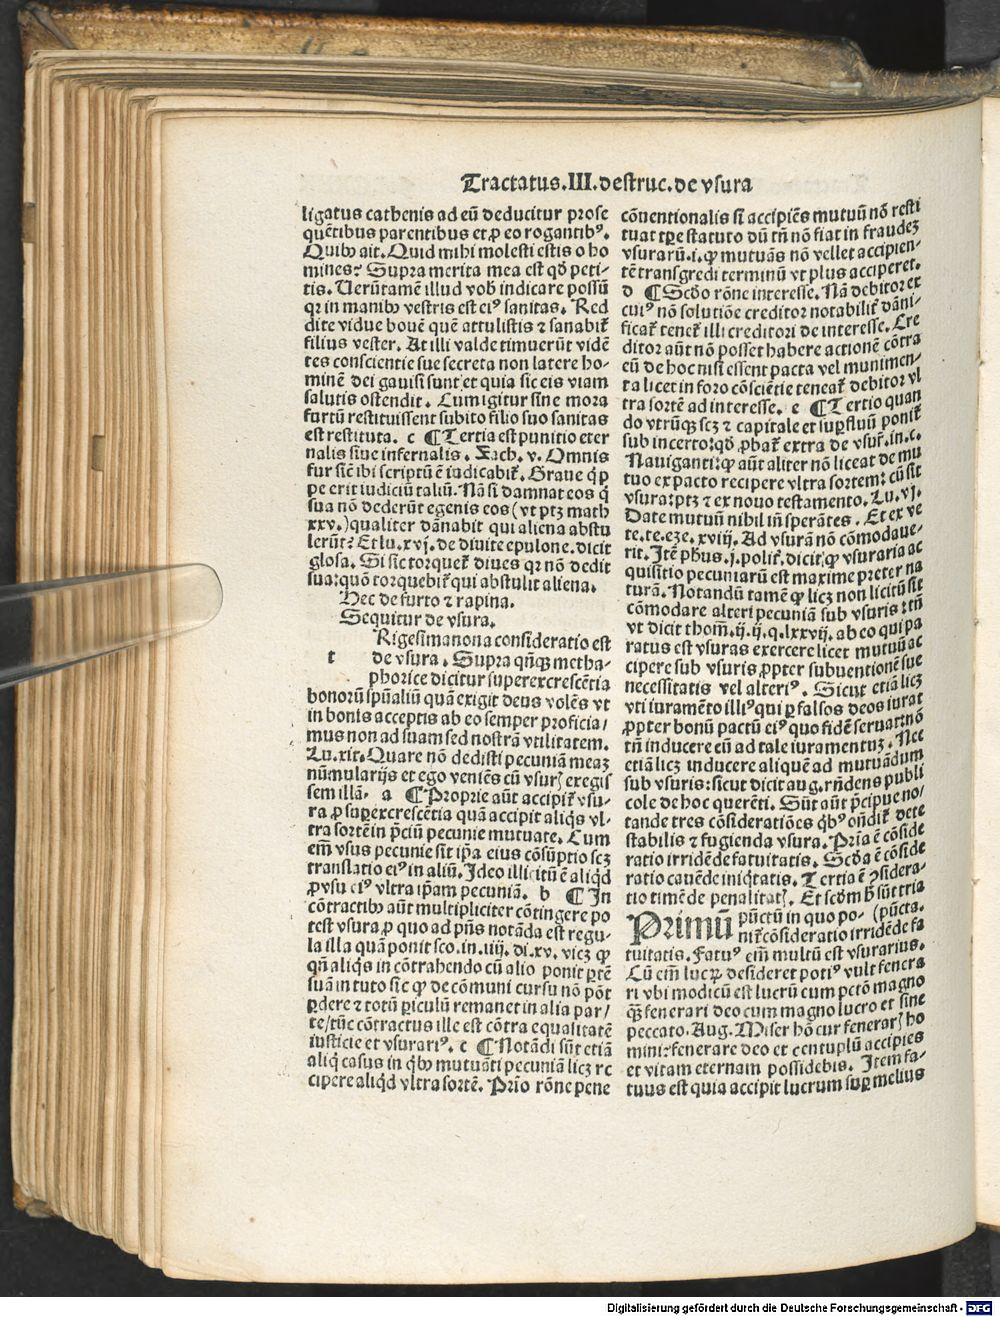 Tractatus.III.destruc.de vsura
ligatus cathenis ad eū deducitur prose
quētibus parentibus et ꝓ eo rogantibꝰ.
Quibꝫ ait. Quid mihi molesti estis o ho
mines? Supra merita mea est qđ peti-
tis. Uerūtamē illud vob̄ indicare possū
qr in manibꝫ vestris est eiꝰ sanitas. Red
dite vidue bouē quē attulistis ⁊ sanabit̄
filius vester. At illi valde timuerūt vidē
tes conscientie sue secreta non latere ho-
minē dei gauisi sunt et quia sic eis viam
salutis ostendit. Cum igitur sine mora
furtū restituissent subito filio suo sanitas
est restituta. c ¶ Tertia est punitio eter
nalis siue infernalis. Zach. v. Omnis
fur sic̄ ibi scriptū ē iudicabit̄. Graue q̇ p
pe erit iudiciū taliū. Nā si damnat eos q̇
sua nō dederūt egenis eos (vt ptꝫ math
xxv.) qualiter dānabit qui aliena abstu
lerūt? Et lu. xvj. de diuite epulone. dicit
glosa. Si sic torquet̄ diues qr nō dedit
sua: quō torquebit̄ qui abstulit aliena.
Hec de furto ⁊ rapina.
Sequitur de vsura.
Rigesimanona consideratio est
t de vsura. Supra qn̄qꝫ metha-
phorice dicitur superexcrescētia
bonorū spūaliū quā exigit deus volēs vt
in bonis acceptis ab eo semper proficia/
mus non ad suam sed nostrā vtilitatem.
Lu. xix. Quare nō dedisti pecuniā meaꝫ
nūmularijs et ego veniēs cū vsurꝭ exegis
sem illā. a ¶ Proprie aūt accipit̄ vsu-
ra ꝓ superexcrescētia quā accipit aliqs vl-
tra sortē in p̄ciū pecunie mutuate. Cum
em̄ vsus pecunie sit ip̄a eius cōsūptio scꝫ
translatio eiꝰ in aliū. Ideo illicitū ē aliqd
ꝓ vsu eiꝰ vltra ip̄am pecuniā. b ¶ In
cōtractibꝫ aūt multipliciter cōtingere po
test vsura ꝓ quo ad p̄ns notāda est regu-
la illa quā ponit sco. in .iiij. di. xv. vicꝫ ꝙ
qn̄ aliqs in cōtrahendo cū alio ponit ꝑtē
suā in tuto sic ꝙ de cōmuni cursu nō pōt
ꝑdere ⁊ totū ꝑiculū remanet in alia par/
te/tūc cōtractus ille est cōtra equalitatē
iusticie et vsurariꝰ. c ¶ Notādi sūt etiā
aliq̇ casus in qbꝫ mutuāti pecuniā licꝫ re
cipere aliqd vltra sortē. Prīo rōne pene
cōuentionalis si accipiēs mutuū nō resti
tuat tꝑe statuto dū tn̄ nō fiat in fraudeꝫ
vsurarū. i. ꝙ mutuās nō vellet accipien-
tē transgredi terminū vt plus acciperet.
d ¶ Scd̄o rōne interesse. Nā debitor ex
cuiꝰ nō solutiōe creditor notabilit̄ dāni-
ficat̄ tenet̄ illi creditori de interesse. Cre
ditor aūt nō posset habere actionē cōtra
eū de hoc nisi essent pacta vel munimen-
ta licet in foro cōsciētie teneat̄ debitor vl
tra sortē ad interesse. e ¶ Tertio quan
do vtrūqꝫ scꝫ ⁊ capitale et suꝑfluū ponit̄
sub incerto: qđ ꝓbat̄ extra de vsur̄. in. c.
Nauiganti: ꝙ aūt aliter nō liceat de mu
tuo ex pacto recipere vltra sortem: cū sit
vsura: ptꝫ ⁊ ex nouo testamento. Lu. vj.
Date mutuū nihil in̄ sperātes. Et ex ve
te. te. eze. xviij. Ad vsurā nō cōmodaue-
rit. Itē ph̄us. j. polit̄. dicit/ ꝙ vsuraria ac
quisitio pecuniarū est maxime preter na
turā. Notandū tamē ꝙ licꝫ non licitū sit
cōmodare alteri pecuniā sub vsuris: tn̄
vt dicit thom̄. ij. ij. q. lxxvij. ab eo qui pa
ratus est vsuras exercere licet mutuū ac
cipere sub vsuris ꝓpter subuentionē sue
necessitatis vel alteriꝰ. Sicut etiā licꝫ
vti iuramēto illiꝰ qui ꝑ falsos deos iurat
ꝓpter bonū pactū eiꝰ quo fidē seruat: nō
tn̄ inducere eū ad tale iuramentuꝫ. Nec
etiā licꝫ inducere aliquē ad mutuādum
sub vsuris: sicut dicit aug. rn̄dens publi
cole de hoc querēti. Sūt aūt p̄cipue no/
tande tres cōsideratiōes qbꝰ on̄dit̄ dete
stabilis ⁊ fugienda vsura. Prīa ē cōside
ratio irridēde fatuitatis. Scd̄a ē cōside
ratio cauēde iniqtatis. Tertia ē ꝯsidera-
tio timēde penalitatꝭ. Et scd̄m h̄ sūt tria
Primū pūctū in quo po- (pūcta.
nit̄ cōsideratio irridēde fa
tuitatis. Fatuꝰ em̄ multū est vsurarius.
Cū em̄ lucꝝ desideret potiꝰ vult fenera
ri vbi modicū est lucrū cum pctō magno
qꝫ fenerari deo cum magno lucro et sine
peccato. Aug. Miser hō cur fenerarꝭ ho
mini: fenerare deo et centuplū accipies
et vitam eternam possidebis. Item fa-
tuus est quia accipit lucrum suꝑ melius
Digitalisierung gefördert durch die Deutsche Forschungsgemeinschaft - DFG